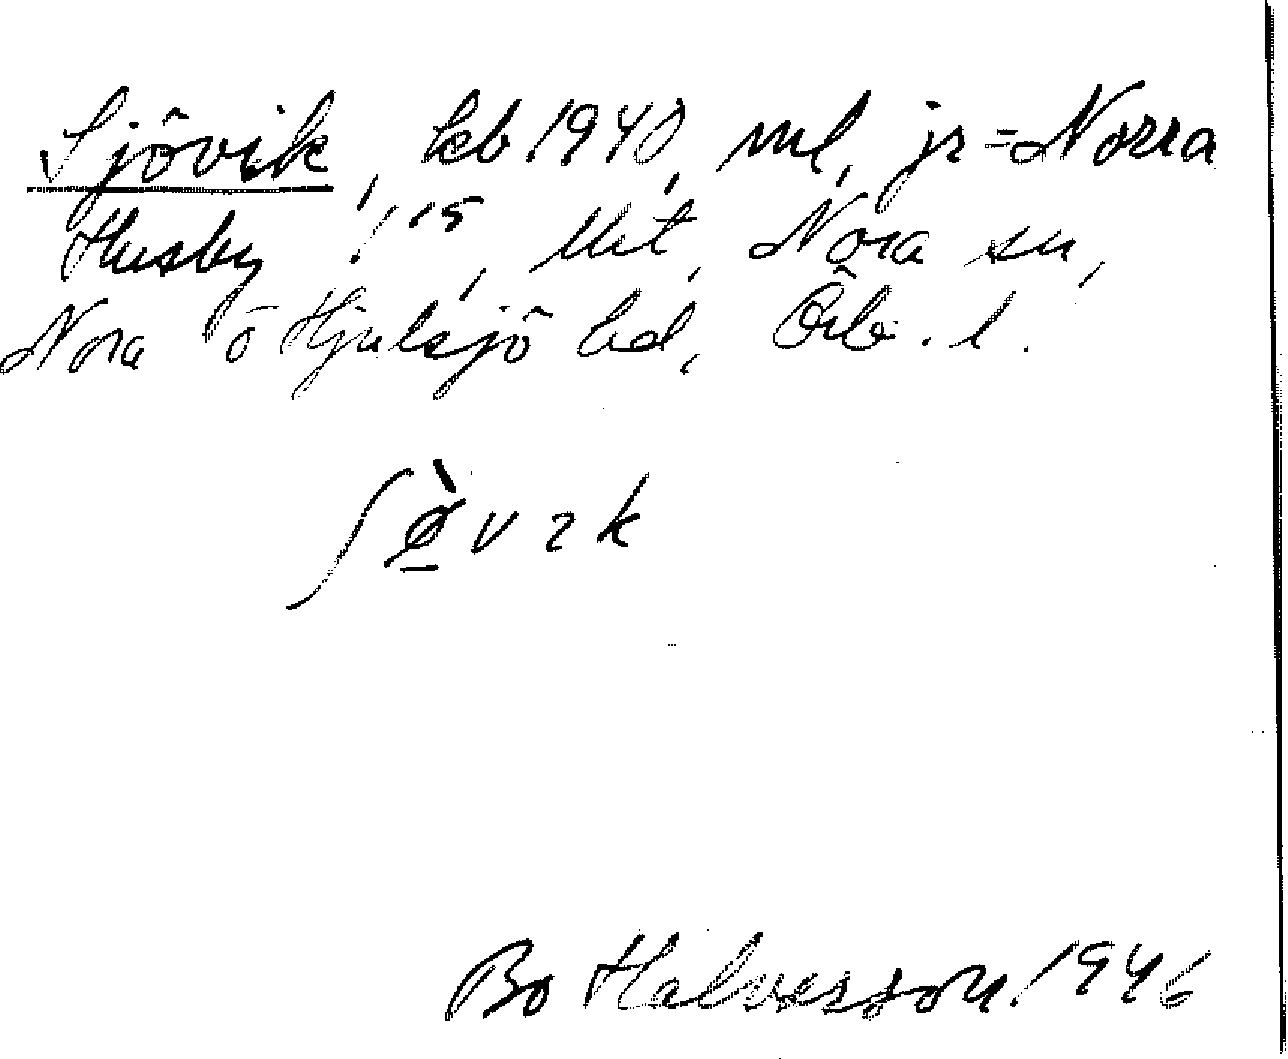 Sjövik, kb 1940, ml, jr = Norra
Husby 1¹⁵, Ut, Nora sn,
Nora o Hjulsjö bd, Örb. l.
ʃø̠̀vɪk
Bo Halvorsson 1946